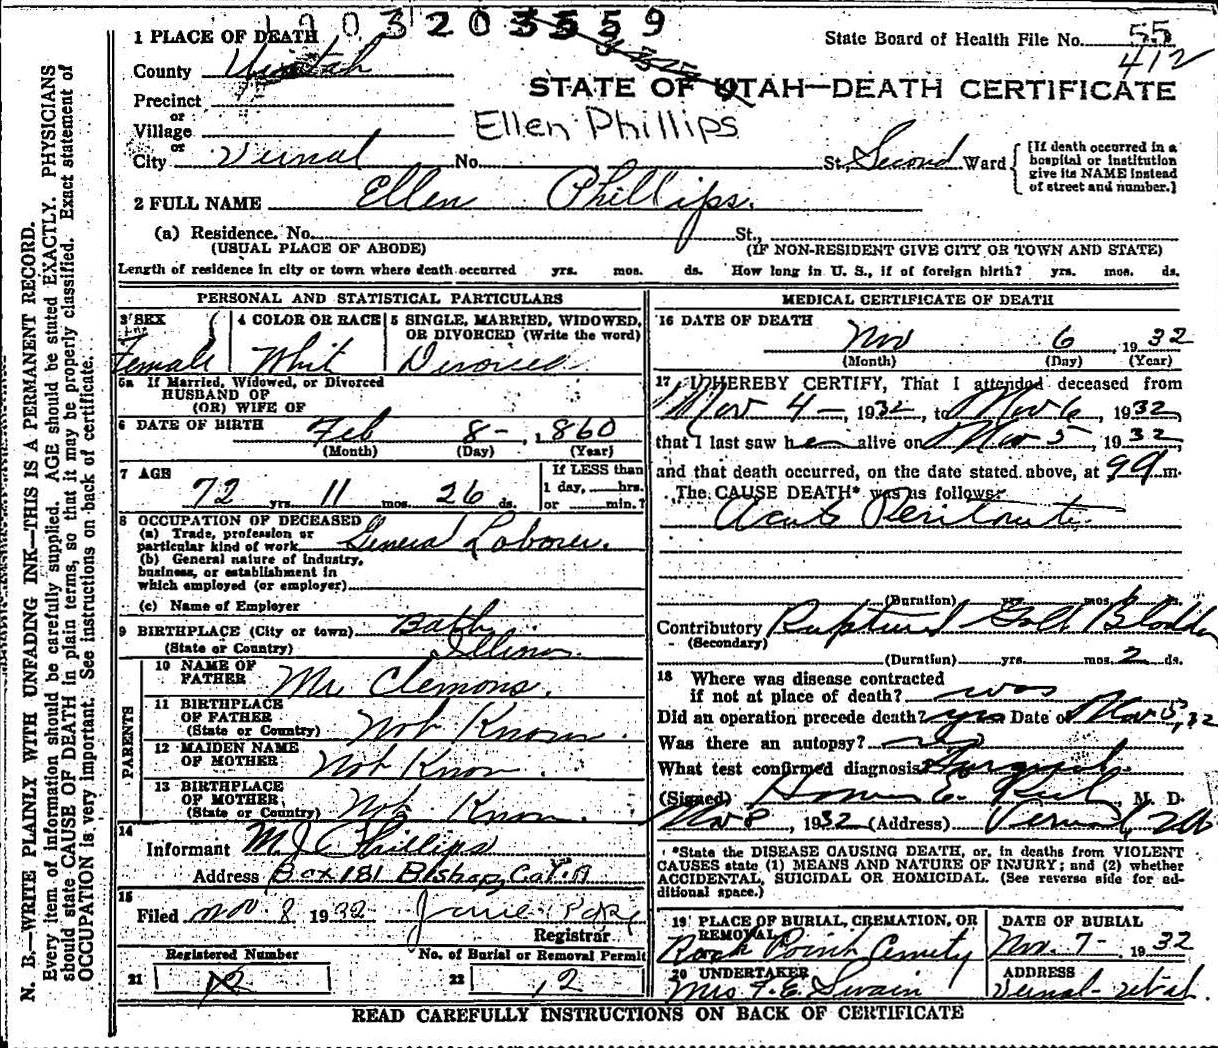 1 PLACE OF DEATH 1 9 0 3 2 0 3 5 5 9
State Board of Health File No. 55
412
County Uintah
STATE OF UTAH—DEATH CERTIFICATE
Precinct
or
Village
Ellen Phillips
or
City Vernal No. St, Second Ward
[If death occurred in a
hospital or institution
give its NAME instead
of street and number.]
2 FULL NAME Ellen Phillips.
(a) Residence. No. St.,
(USUAL PLACE OF ABODE) (IF NON-RESIDENT GIVE CITY OR TOWN AND STATE)
Length of residence in city or town where death occurred yrs. mos. ds. How long in U. S., if of foreign birth? yrs. mos. ds.
PERSONAL AND STATISTICAL PARTICULARS
3 SEX
Female
4 COLOR OR RACE
Whit
5 SINGLE, MARRIED, WIDOWED,
OR DIVORCED (Write the word)
Divorced
5a If Married, Widowed, or Divorced
HUSBAND OF
(OR) WIFE OF
6 DATE OF BIRTH Feb 8-, 1860
(Month) (Day) (Year)
7 AGE
72 yrs. 11 mos. 26 ds.
If LESS than
1 day, hrs.
or min.?
8 OCCUPATION OF DECEASED
(a) Trade, profession or
particular kind of work General Laborer.
(b) General nature of industry,
business, or establishment in
which employed (or employer)
(c) Name of Employer
9 BIRTHPLACE (City or town) Bath
(State or Country) Illinois.
PARENTS
10 NAME OF
FATHER Mr. Clemons.
11 BIRTHPLACE
OF FATHER
(State or Country) Not Known.
12 MAIDEN NAME
OF MOTHER Not Known.
13 BIRTHPLACE
OF MOTHER
(State or Country) Not Known.
14
Informant M.J. Phillips
Address Box 181 Bishop, Cal.
15
Filed Nov 8 1932
Registrar
Registered Number No. of Burial or Removal Permit
21 12 22 12
MEDICAL CERTIFICATE OF DEATH
16 DATE OF DEATH
Nov 6, 1932
(Month) (Day) (Year)
17 I HEREBY CERTIFY, That I attended deceased from
Nov 4-, 1932, to Nov 6, 1932,
that I last saw her alive on Nov 5, 1932,
and that death occurred, on the date stated above, at 9 a m.
The CAUSE DEATH* was as follows:
Acute Peritonitis
(Duration) yrs. mos. ds.
Contributory Ruptured Gall Bladder
(Secondary)
(Duration) yrs. mos. 2 ds.
18 Where was disease contracted
if not at place of death? was
Did an operation precede death? yes Date of Nov. 5, 32
Was there an autopsy? no
What test confirmed diagnosis
(Signed) Homer E. M. D.
Nov 8, 1932 (Address) Vernal, Utah
*State the DISEASE CAUSING DEATH, or, in deaths from VIOLENT
CAUSES state (1) MEANS AND NATURE OF INJURY; and (2) whether
ACCIDENTAL, SUICIDAL OR HOMICIDAL. (See reverse side for ad-
ditional space.)
19 PLACE OF BURIAL, CREMATION, OR
REMOVAL
Rock Point Cemetry
DATE OF BURIAL
Nov. 7- 1932
20 UNDERTAKER
Mrs F. E. Swain
ADDRESS
Vernal-Utah.
READ CAREFULLY INSTRUCTIONS ON BACK OF CERTIFICATE
N. B.—WRITE PLAINLY WITH UNFADING INK—THIS IS A PERMANENT RECORD.
Every item of information should be carefully supplied. AGE should be stated EXACTLY. PHYSICIANS
should state CAUSE OF DEATH in plain terms, so that it may be properly classified. Exact statement of
OCCUPATION is very important. See instructions on back of certificate.